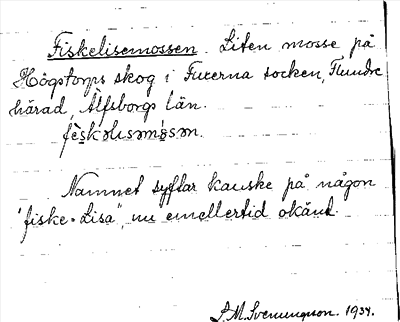 Fiskelisemossen. Liten mosse på
Högstorps skog i Fuxerna socken, Flundre
härad, Älfsborgs län.
Namnet syftar kanske på någon
"fiske-Lisa", nu emellertid okänd.
S. M. Svenungson. 1934.